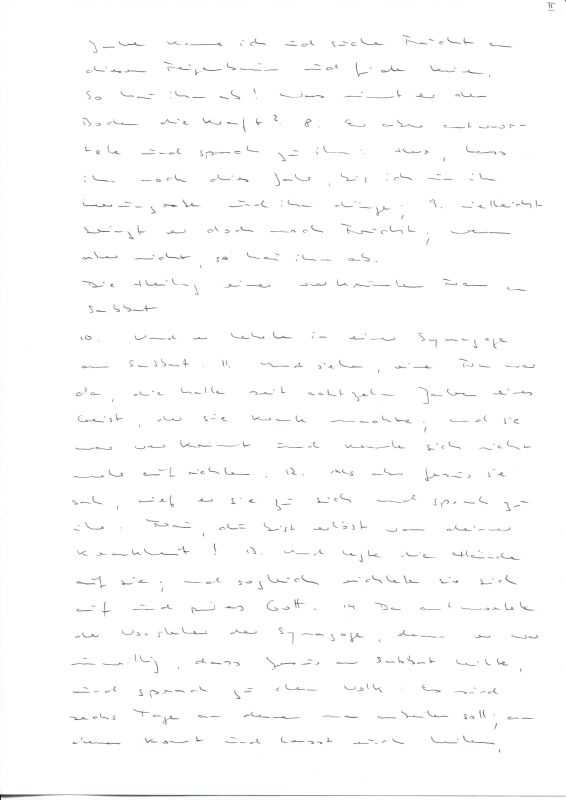 II
Jahre komme ich und suche Frucht an
diesem Feigenbaum und finde keine.
So hau ihn ab! Was nimmt er dem
Boden die Kraft? 8. Er aber antwor-
tete und sprach zu ihm: Herr, lass
ihn noch dies Jahr, bis ich um ihn
herumgrabe und ihn dünge; 9. vielleicht
bringt er doch noch Frucht; wenn
aber nicht, so hau ihn ab.
Die Heilung einer verkrümmten Frau am
Sabbat
10. Und er lehrte in einer Synagoge
am Sabbat. 11. Und siehe, eine Frau war
da, die hatte seit achtzehn Jahren einen
Geist, der sie krank machte; und sie
war verkrümmt und konnte sich nicht
mehr aufrichten. 12. Als aber Jesus sie
sah, rief er sie zu sich und sprach zu
ihr: Frau, du bist erlöst von deiner
Krankheit! 13. Und legte die Hände
auf sie; und sogleich richtete sie sich
auf und pries Gott. 14 Da antwortete
der Vorsteher der Synagoge, denn er war
unwillig, dass Jesus am Sabbat heilte,
und sprach zu dem Volk: Es sind
sechs Tage an denen man arbeiten soll; an
denen kommt und lasst euch heilen,